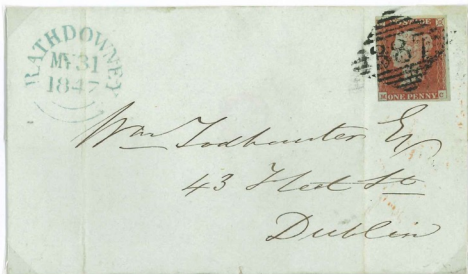 RATHDOWNEY
MY 31
1847
POSTAGE
387
ONE PENNY
Wm Todhunter Esq
43 Fleet St
Dublin